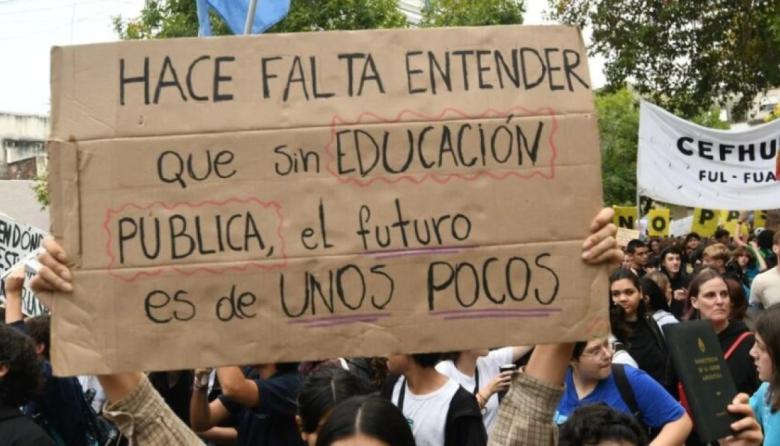 HACE FALTA ENTENDER
que sin EDUCACIÓN
PÚBLICA, el futuro
es de UNOS POCOS
CEFHU
FUL - FUA
NO